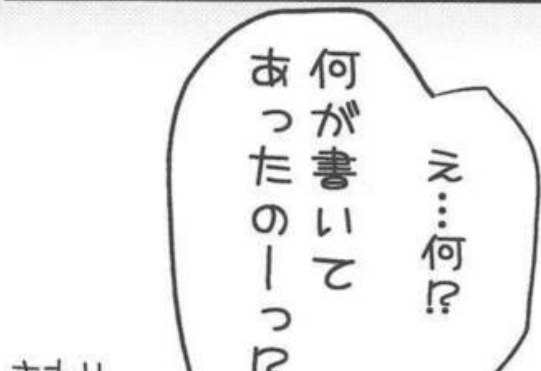 え…何!?
何が書いて
あったのーっ!?